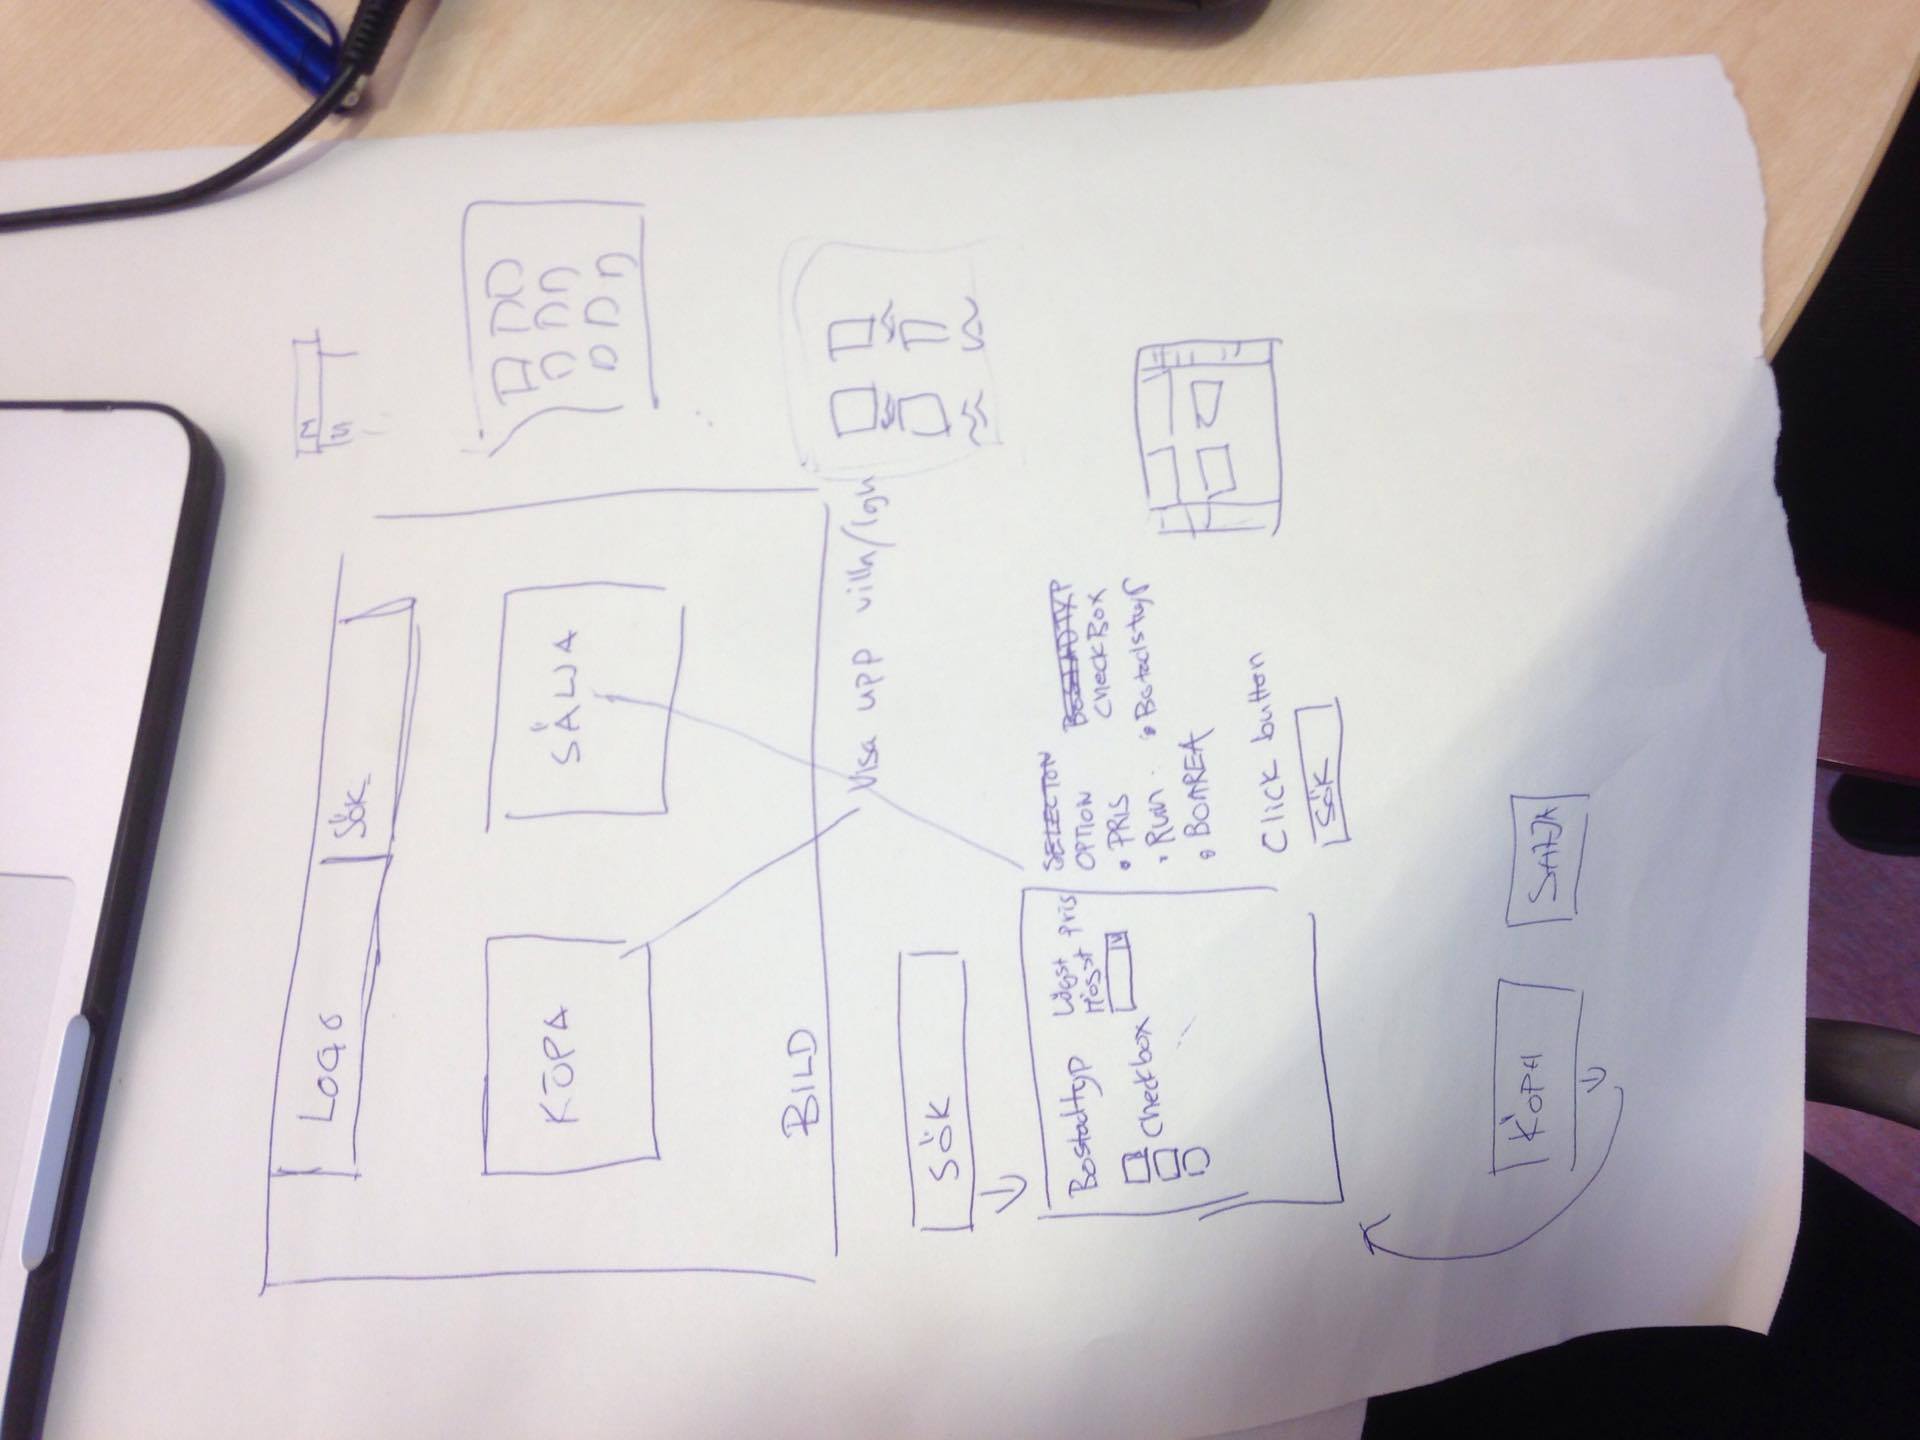 LOGO
SÖK
KÖPA
SÄLJA
BILD
Visa upp villa/lgh
SÖK
Bostadtyp
Lägst Pris
Högst
Checkbox
SELECTION
OPTION
• PRIS
• Rum
• BOAREA
BOSTADTYP
CheckBox
• Bostadstyp
Click button
SÖK
KÖPA
SÄLJA